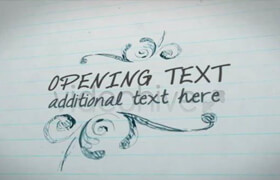 OPENING TEXT
additional text here
videohive